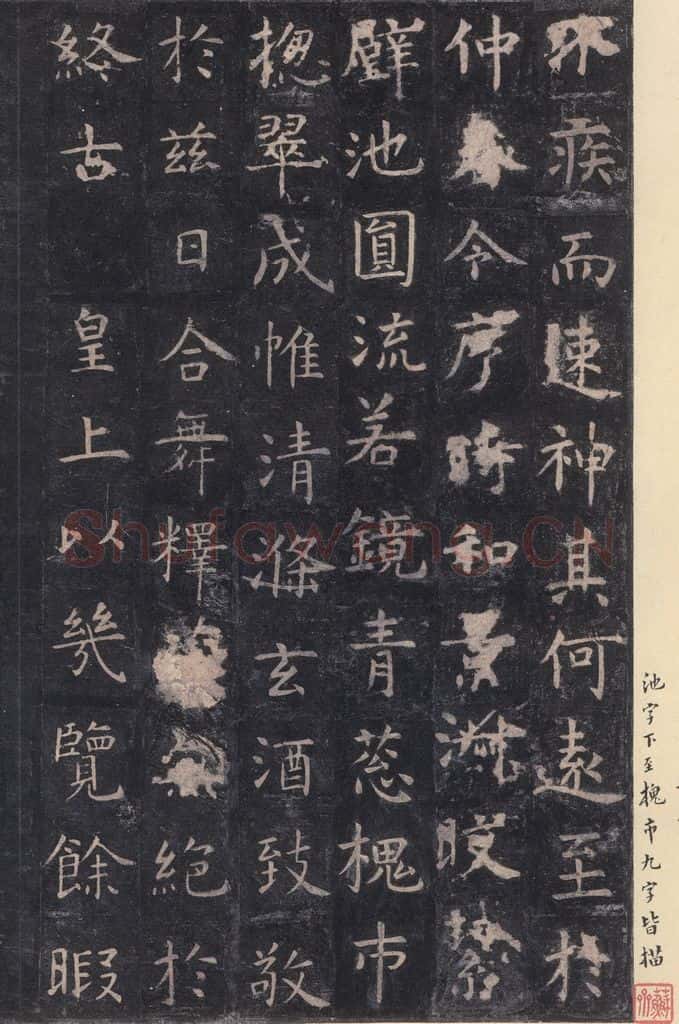 不疾而速神其何遠至於
仲春令序時和景淑晈
璧池圓流若鏡青葱槐市
揔翠成帷清滌玄酒致敬
於兹日合舞釋絕於
終古 皇上以幾覽餘暇
池字下至槐市九字皆描
Shufawang.CN